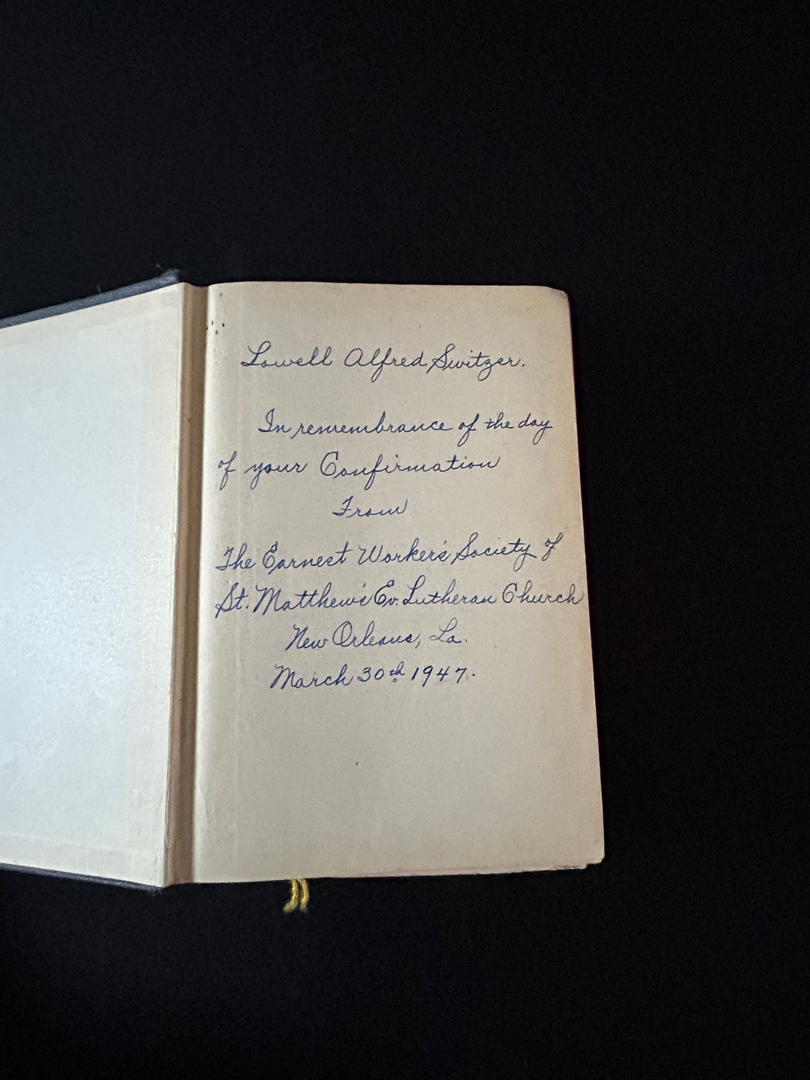 Lowell Alfred Switzer.
In remembrance of the day
of your Confirmation
From
The Earnest Worker's Society of
St. Matthew's Ev. Lutheran Church
New Orleans, La.
March 30th 1947.